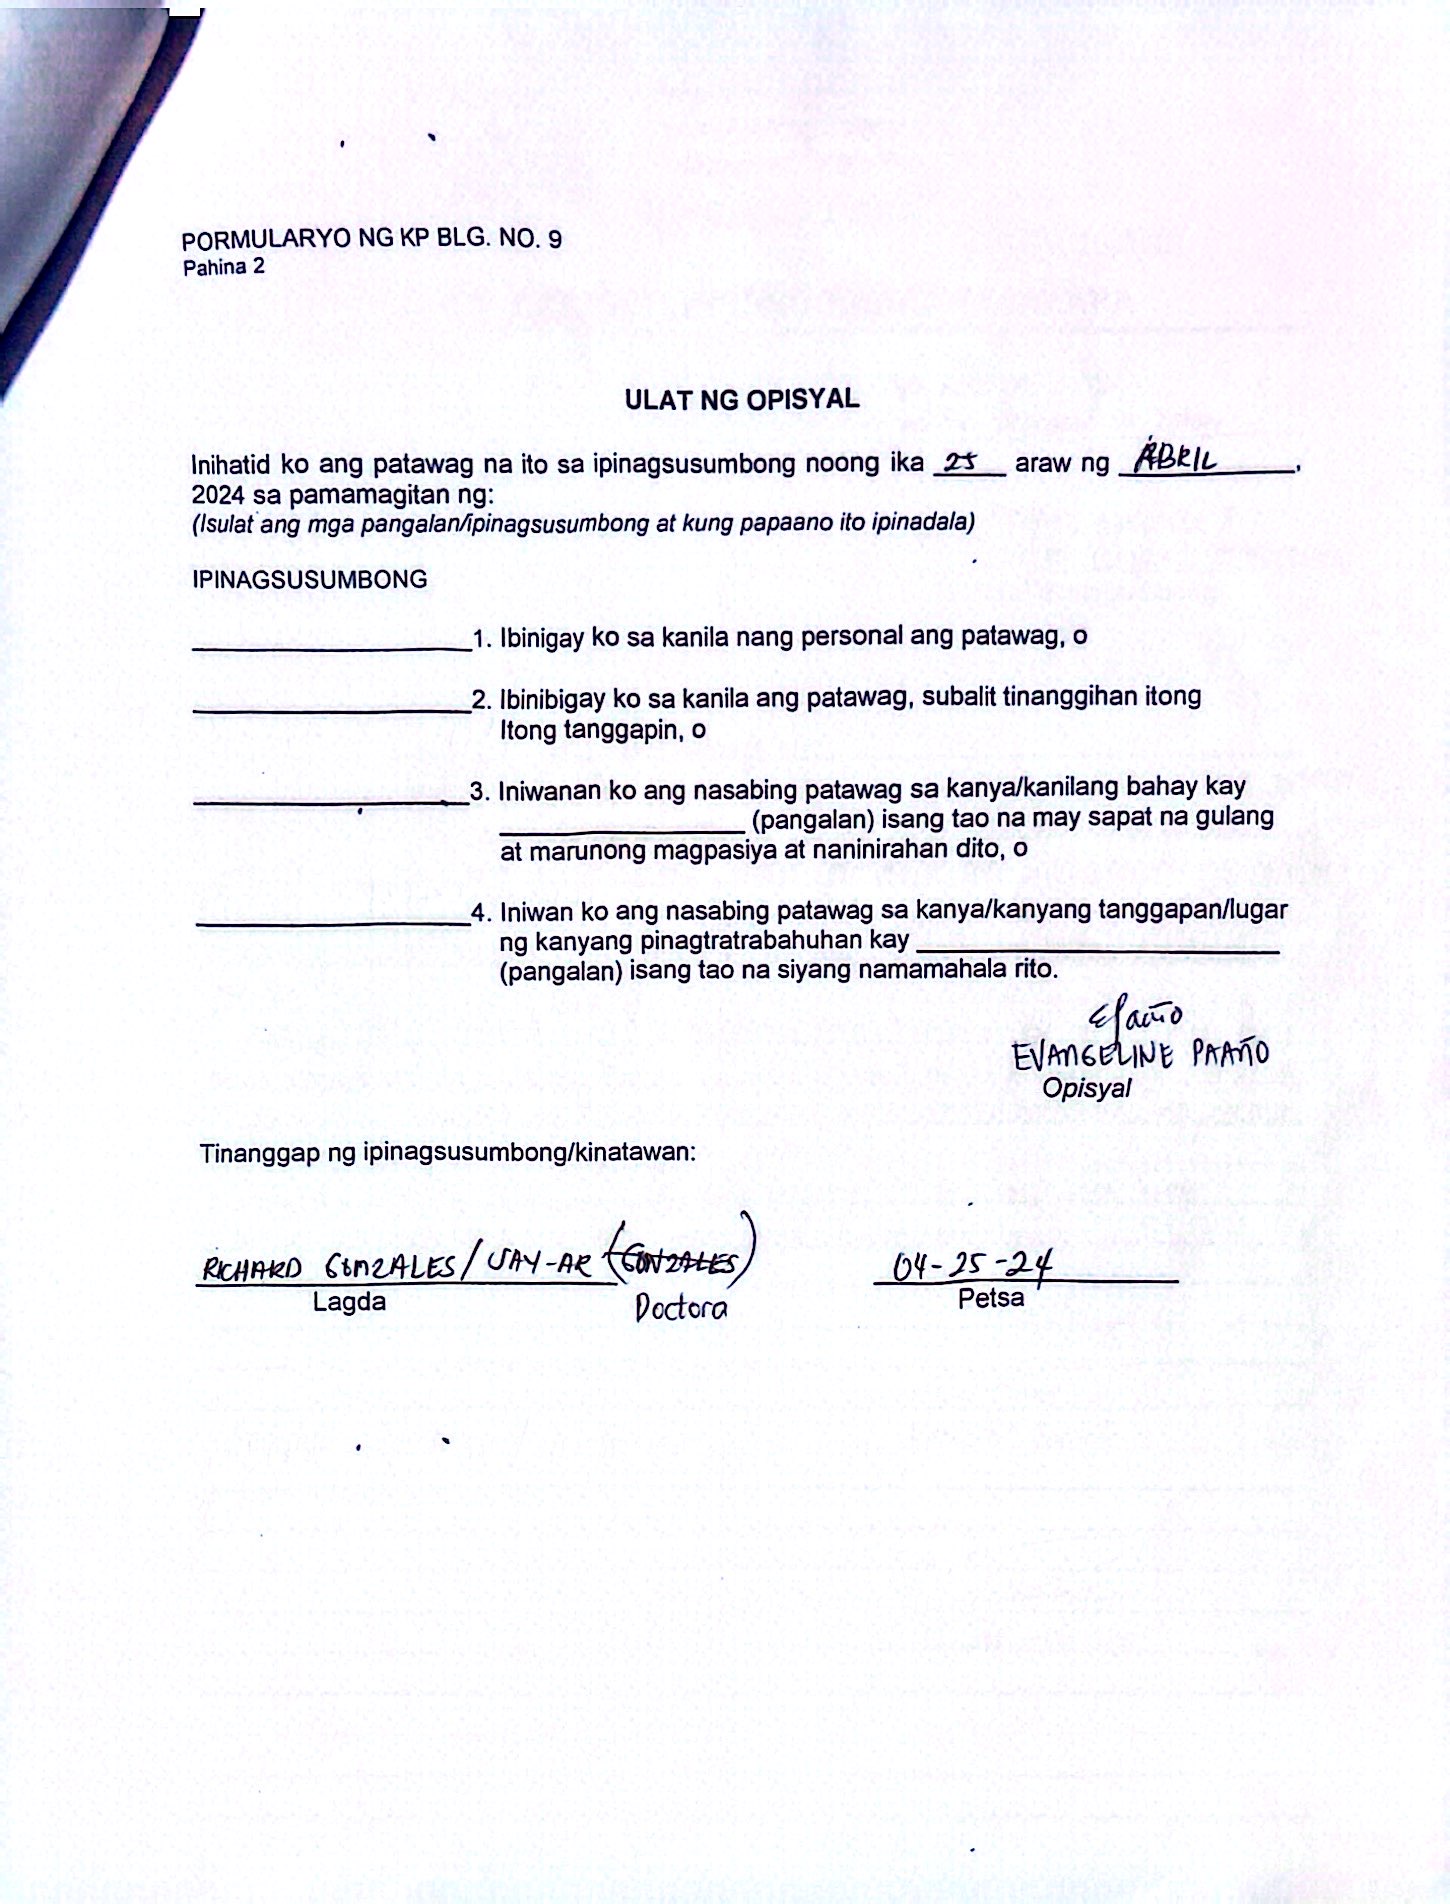 PORMULARYO NG KP BLG. NO. 9
Pahina 2
ULAT NG OPISYAL
Inihatid ko ang patawag na ito sa ipinagsusumbong noong ika 25 araw ng ABRIL,
2024 sa pamamagitan ng:
(Isulat ang mga pangalan/ipinagsusumbong at kung papaano ito ipinadala)
IPINAGSUSUMBONG
____________________1. Ibinigay ko sa kanila nang personal ang patawag, o
____________________2. Ibinibigay ko sa kanila ang patawag, subalit tinanggihan itong
Itong tanggapin, o
____________________3. Iniwanan ko ang nasabing patawag sa kanya/kanilang bahay kay
__________________ (pangalan) isang tao na may sapat na gulang
at marunong magpasiya at naninirahan dito, o
____________________4. Iniwan ko ang nasabing patawag sa kanya/kanyang tanggapan/lugar
ng kanyang pinagtratrabahuhan kay __________________________
(pangalan) isang tao na siyang namamahala rito.
EPaaño
EVANGELINE PAAÑO
Opisyal
Tinanggap ng ipinagsusumbong/kinatawan:
RICHARD GONZALES / JAY-AR (GONZALES) 04-25-24
Lagda Doctora Petsa